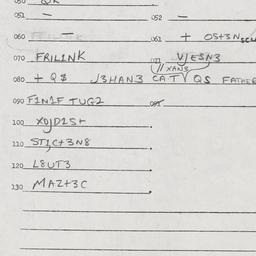 051 — 052 —
060 — 061 + OST3N
070 FRILINK 071 VJESN3
// XAN3
080 + Q$ J3HAN3 CAT QS FATHER
090 F1N1F TUG2 095
100 XOJD1S+
110 ST1C+3N8
120 L8UT3
130 MAZ+3C